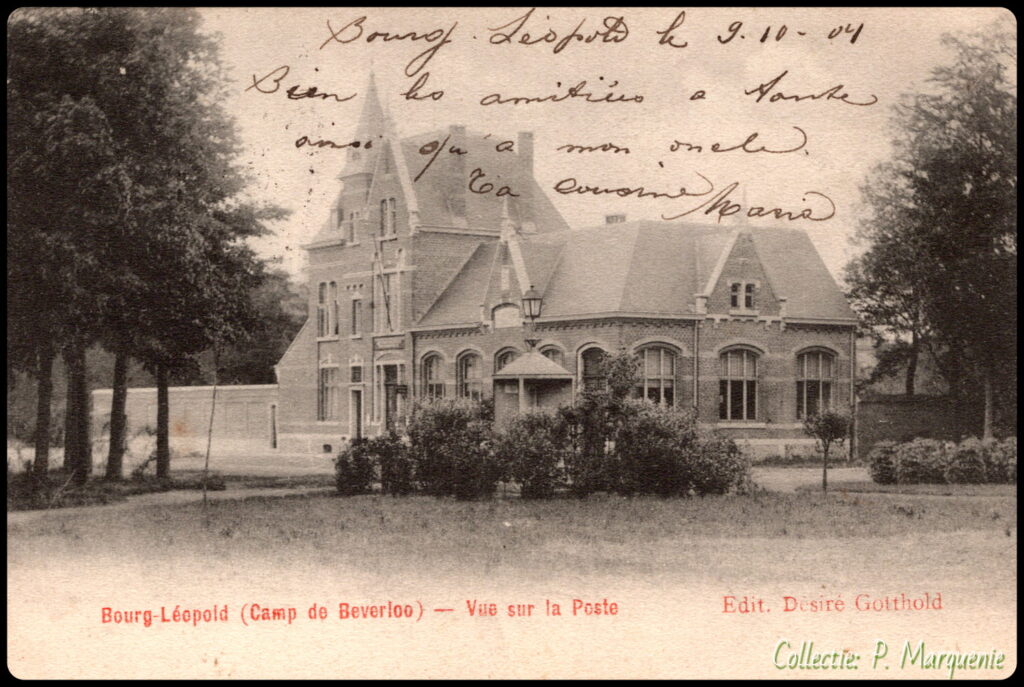 Bourg-Léopold le 9-10-04
Bien des amitiées a Tante
ainsi qu'a mon oncle.
Ta cousine Maria
Bourg-Léopold (Camp de Beverloo) — Vue sur la Poste
Edit. Désiré Gotthold
Collectie: P. Marquenie